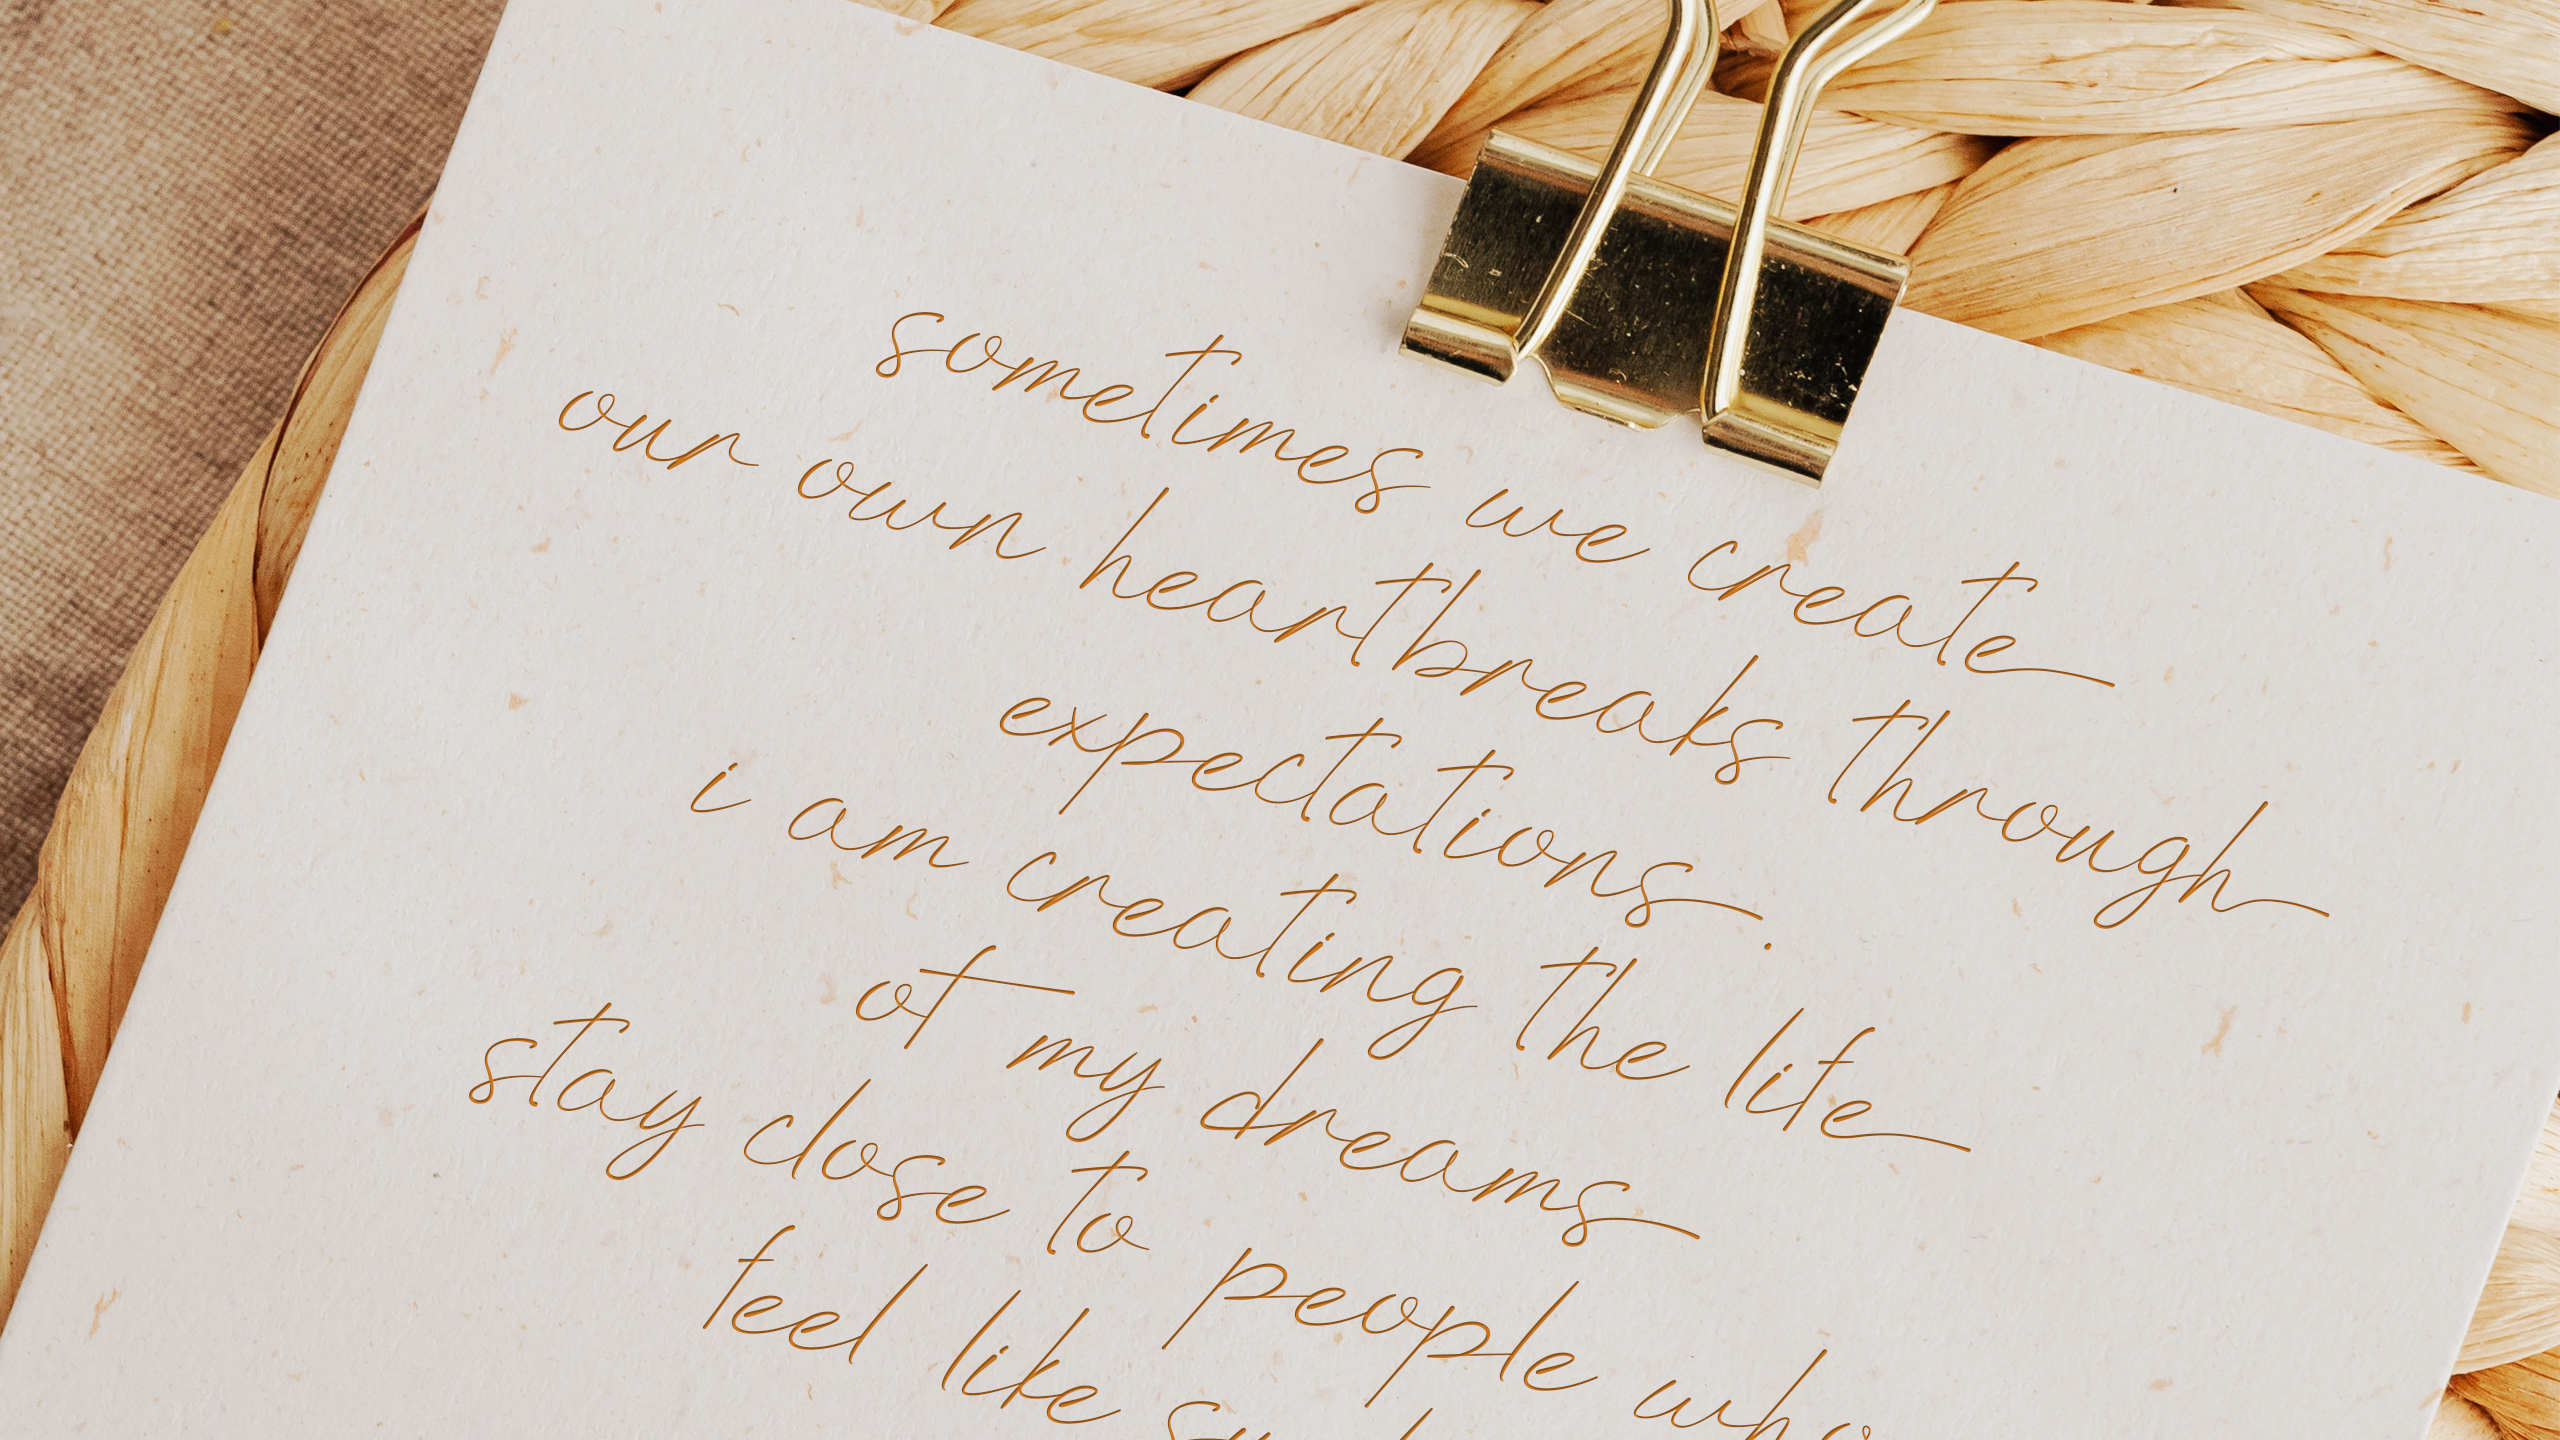 sometimes we create
our own heartbreaks through
expectations.
i am creating the life
of my dreams
stay close to people who
feel like